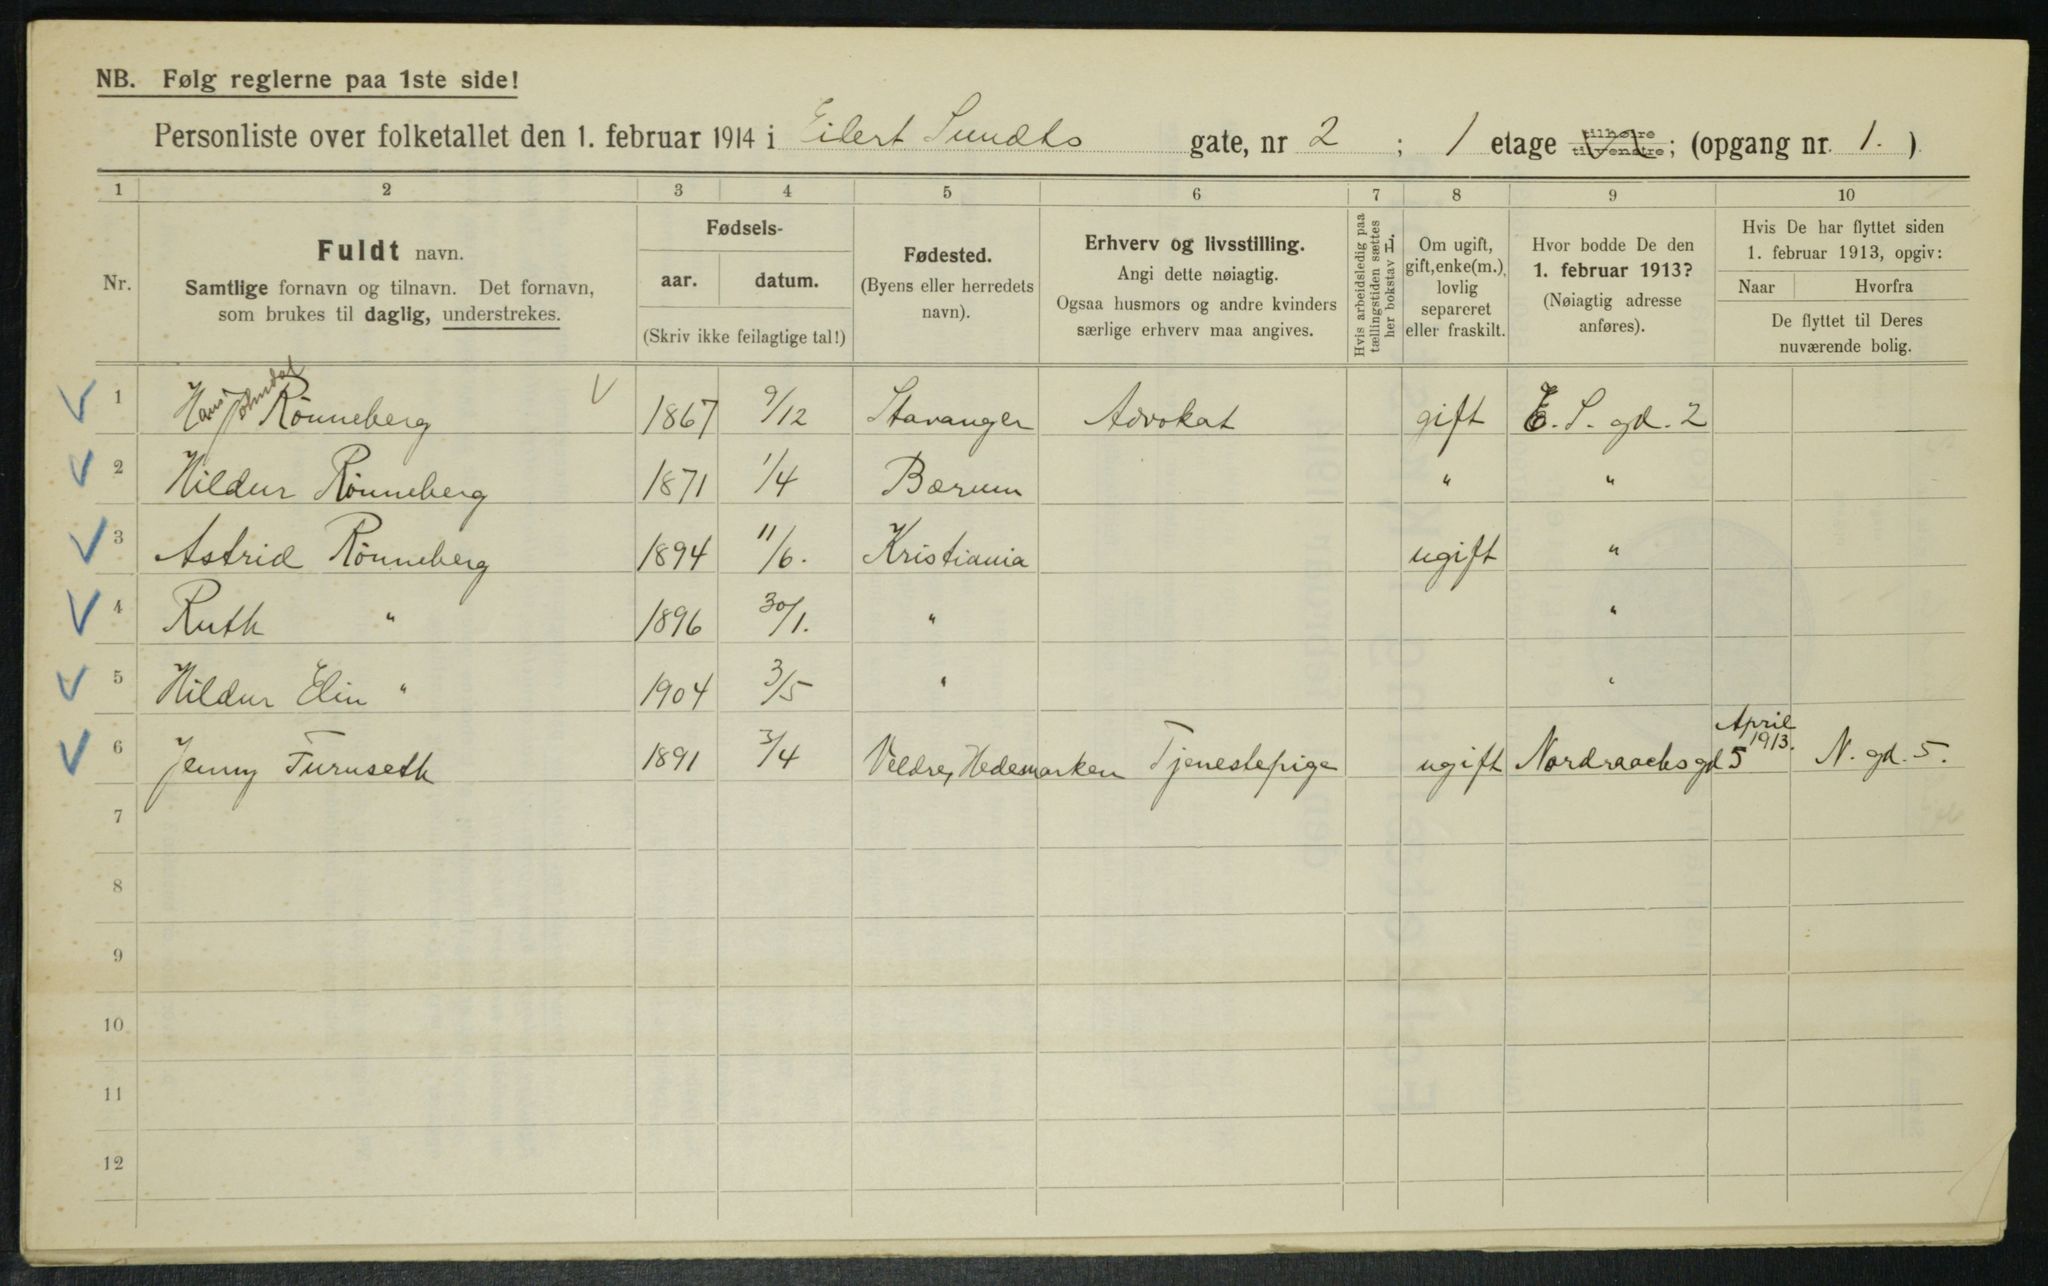 NB. Følg reglerne paa 1ste side!
Personliste over folketallet den 1. februar 1914 i Eilert Sundts gate, nr 2 ; 1 etage tilhøire tilvenstre; (opgang nr. 1. )
1 2 3 4 5 6 7 8 9 10
Nr.
Fuldt navn.
Samtlige fornavn og tilnavn. Det fornavn,
som brukes til daglig, understrekes.
Fødsels-
aar. datum.
(Skriv ikke feilagtige tal!)
Fødested.
(Byens eller herredets
navn).
Erhverv og livsstilling.
Angi dette nøiagtig.
Ogsaa husmors og andre kvinders
særlige erhverv maa angives.
Hvis arbeidsledig paa
tællingstiden sættes
her bokstav L.
Om ugift,
gift, enke(m.),
lovlig
separeret
eller fraskilt.
Hvor bodde De den
1. februar 1913?
(Nøiagtig adresse
anføres).
Hvis De har flyttet siden
1. februar 1913, opgiv:
Naar Hvorfra
De flyttet til Deres
nuværende bolig.
1 Hans Rönneberg 1867 9/12 Stavanger Advokat gift E. S. gd. 2
2 Hildur Rönneberg 1871 1/4 Bærum " "
3 Astrid Rönneberg 1894 11/6. Kristiania ugift "
4 Ruth " 1896 30/1. " "
5 Hildur Elin " 1904 3/5 " "
6 Jenny Furuseth 1891 3/4 Veldre, Hedemarken Tjenestepige ugift Nordraachsgd 5 April 1913. N. gd. 5.
7
8
9
10
11
12